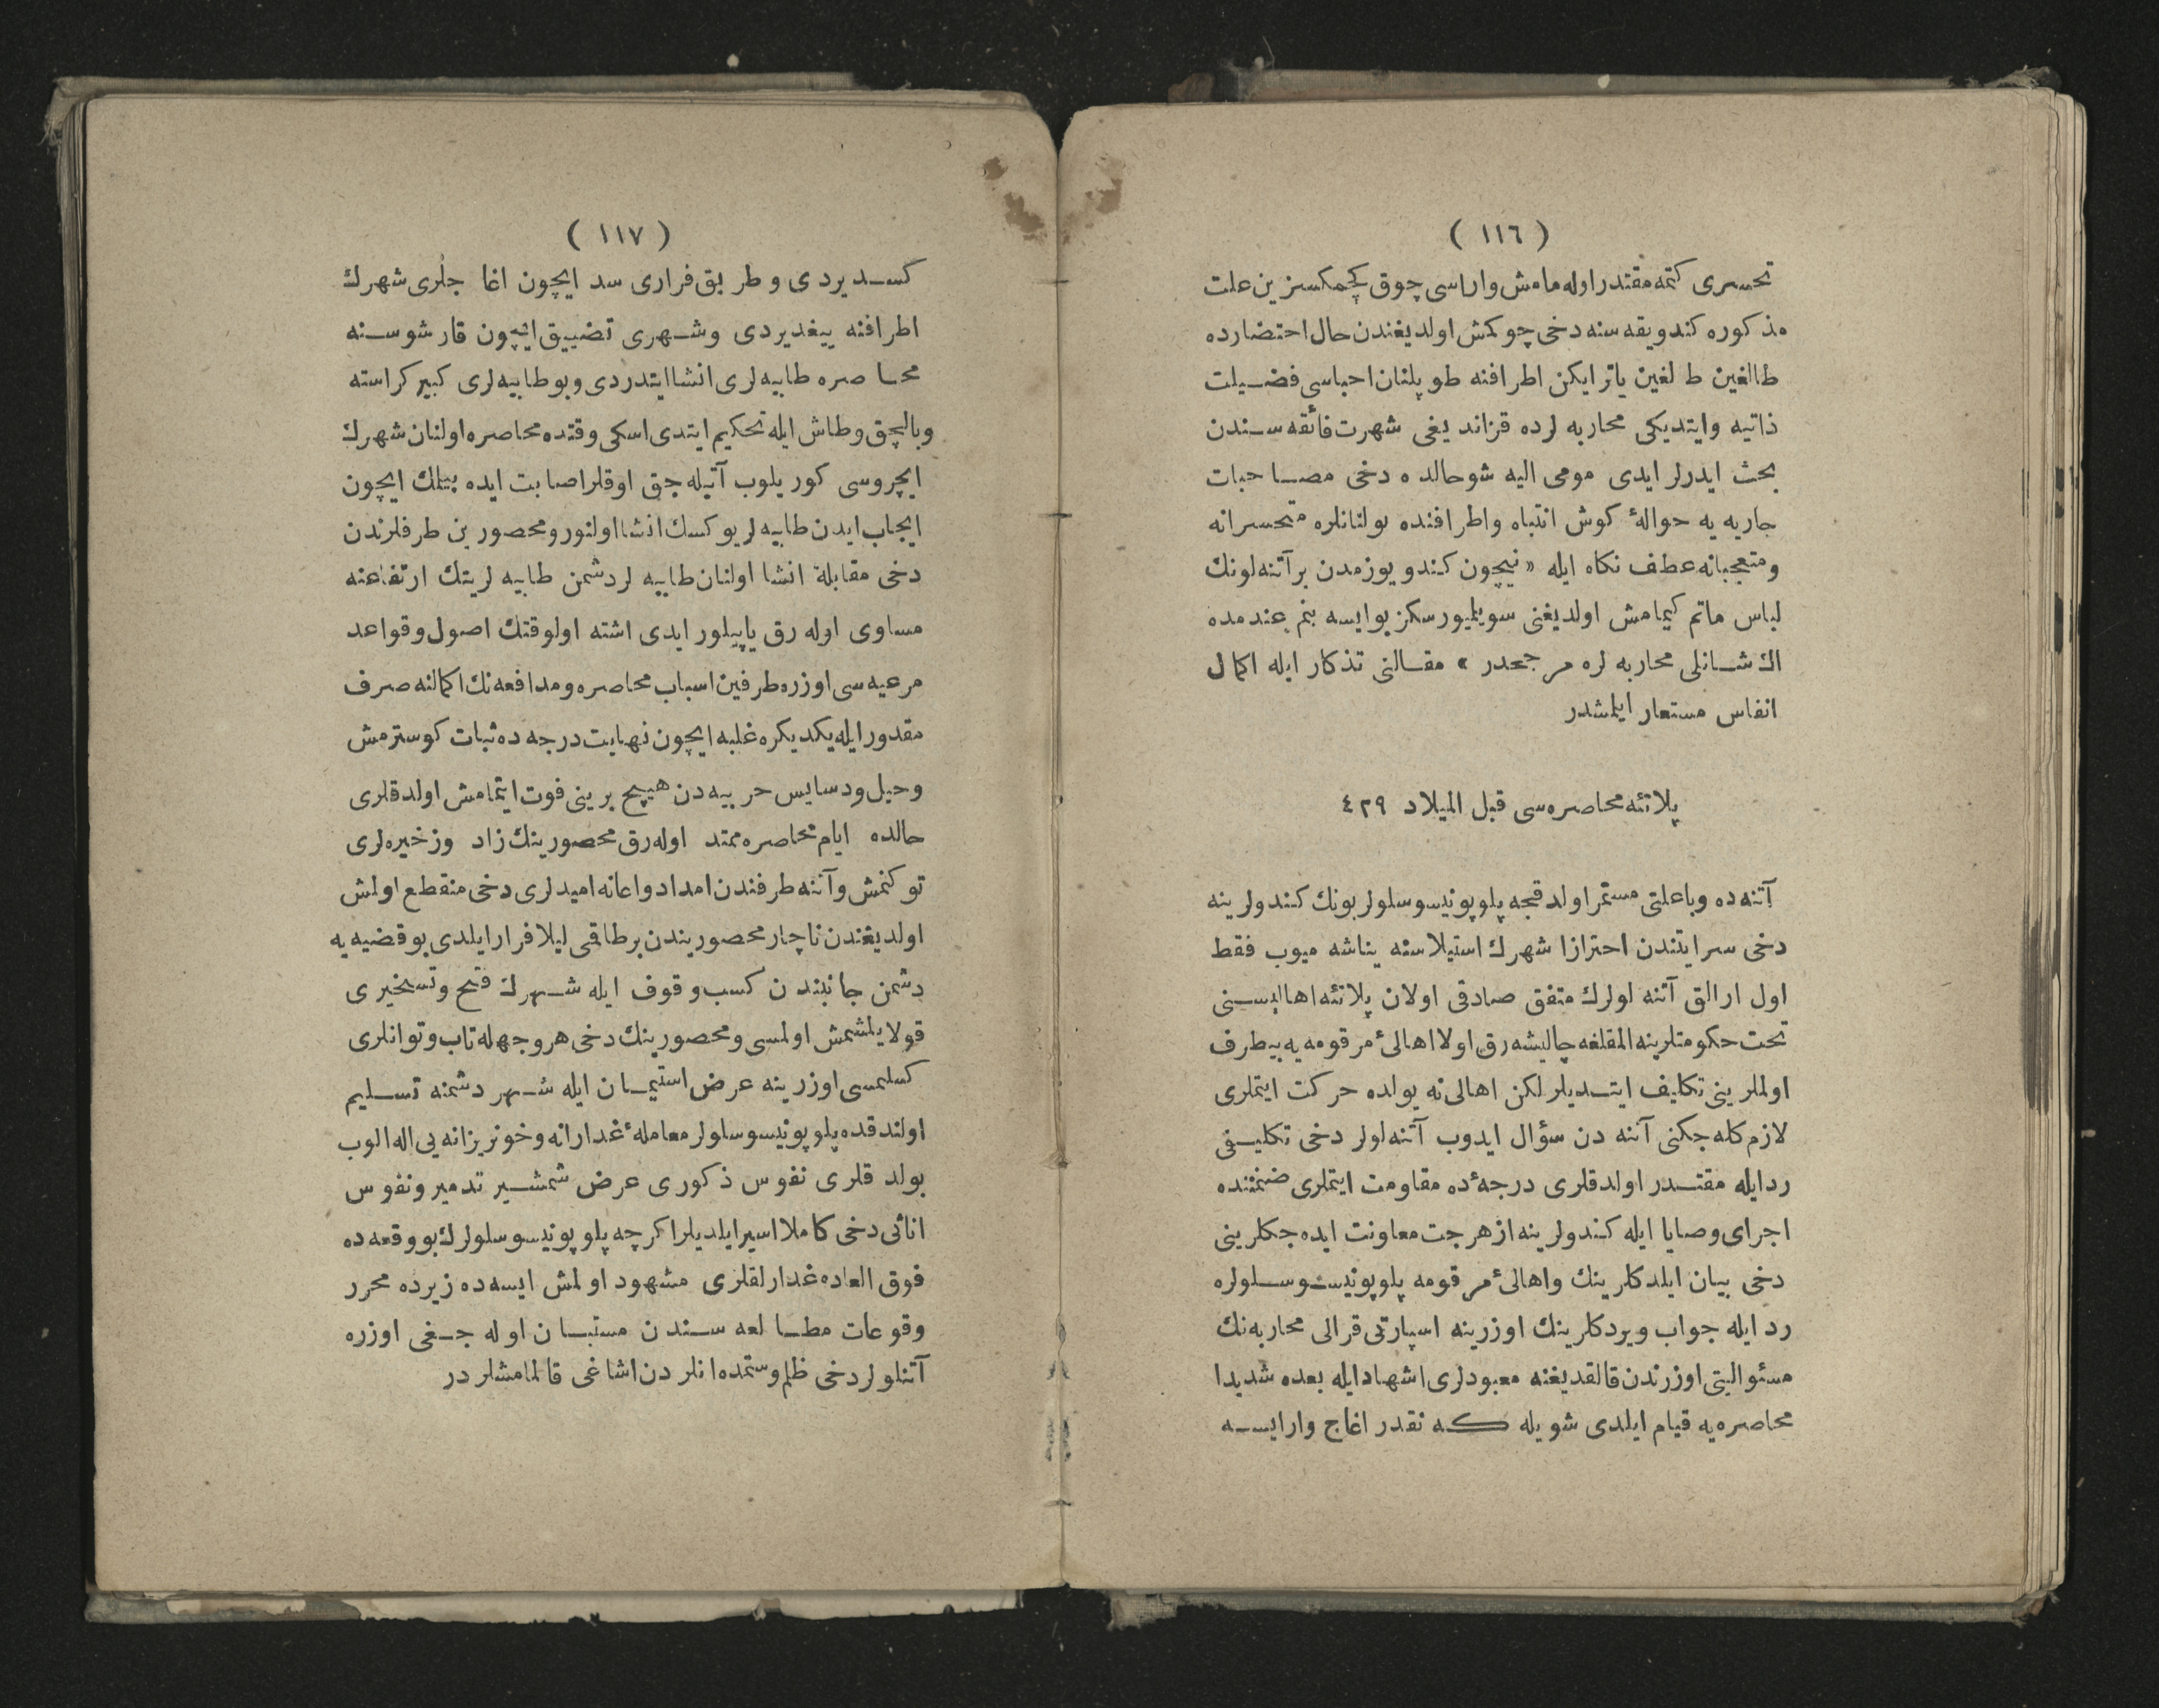 ( ١١٦ )
تحسری كتمه مقتدر اوله مامش واراسی چوق كچمكسزین علت
مذكوره كندو یقه سنه دخی چوكمش اولدیغندن حال احتضارده
طالغین طالغین یاتر ایكن اطرافنه طوپلنان احباسی فضیلت
ذاتیه وایتدیكی محاربه لرده قزاندیغی شهرت فائقه سندن
بحث ایدرلر ایدی مومی الیه شو حالده دخی مصاحبات
جاریه یه حوالهٔ كوش انتباه واطرافنده بولنانلره متحسرانه
ومتعجبانه عطف نكاه ایله « نیچون كندو یوزمدن بر آتنه لونك
لباس ماتم كیمامش اولدیغنی سویلیورسكز بو ایسه بنم عندمده
اك شانلی محاربه لره مرجحدر » مقالنی تذكار ایله اكمال
انفاس مستعار ایلمشدر
پلاتئه محاصره سی قبل المیلاد ٤٢٩
آتنه ده وبا علتی مستمر اولدقجه پلوپونیسوسلولر بونك كندولرینه
دخی سرایتندن احترازا شهرك استیلاسنه یناشه میوب فقط
اول ارالق آتنه لولرك متفق صادقی اولان پلاتئه اهالیسنی
تحت حكومتلرینه القلغه چالیشه رق اولا اهالیٔ مرقومه یه بیطرف
اولملرینی تكلیف ایتدیلر لكن اهالی نه یولده حركت ایتملری
لازم كله جكنی آتنه دن سؤال ایدوب آتنه لولر دخی تكلیفی
رد ایله مقتدر اولدقلری درجهٔ ده مقاومت ایتملری ضمننده
اجرای وصایا ایله كندولرینه از هر جت معاونت ایده جكلرینی
دخی بیان ایلدكلرینك واهالیٔ مرقومه پلوپونیسوسلولره
رد ایله جواب ویردكلرینك اوزرینه اسپارتی قرالی محاربه نك
مسئوالیتی اوزرندن قالقدیغنه معبودلری اشهاد ایله بعده شدیدا
محاصره یه قیام ایلدی شویله كه نقدر اغاج وار ایسه
( ١١٧ )
كسدیردی وطریق فراری سد ایچون اغاجلری شهرك
اطرافنه ییغدیردی وشهری تضییق ایچون قارشوسنه
محاصره طابیه لری انشا ایتدردی وبو طابیه لری كبیر كراسته
وبالچق وطاش ایله تحكیم ایتدی اسكی وقتده محاصره اولنان شهرك
ایچروسی كوریلوب آتیله جق اوقلر اصابت ایده بیلمك ایچون
ایجاب ایدن طابیه لر یوكسك انشا اولنور ومحصورین طرفلرندن
دخی مقابلة انشا اولنان طابیه لر دشمن طابیه لرینك ارتفاعنه
مساوی اوله رق یاپیلور ایدی اشته اولوقتك اصول وقواعد
مرعیه سی اوزره طرفین اسباب محاصره ومدافعه نك اكمالنه صرف
مقدور ایله یكدیكره غلبه ایچون نهایت درجه ده ثبات كوسترمش
وحیل ودسایس حربیه دن هیچ برینی فوت ایتمامش اولدقلری
حالده ایام محاصره ممتد اوله رق محصورینك زاد وزخیره لری
توكنمش وآتنه طرفندن امداد واعانه امیدلری دخی منقطع اولمش
اولدیغندن ناچار محصوریندن برطاقمی لیلا فرار ایلدی بو قضیه یه
دشمن جانبندن كسب وقوف ایله شهرك فتح وتسخیری
قولایلشمش اولمسی ومحصورینك دخی هر وجهله تاب وتوانلری
كسلمسی اوزرینه عرض استیمان ایله شهر دشمنه تسلیم
اولندقده پلوپونیسوسلولر معاملهٔ غدارانه وخونریزانه یی اله الوب
بولدقلری نفوس ذكوری عرض شمشیر تدمیر ونفوس
اناثی دخی كاملا اسیر ایلدیلر اكرچه پلوپونیسوسلولرك بو وقعه ده
فوق العاده غدارلقلری مشهود اولمش ایسه ده زیرده محرر
وقوعات مطالعه سندن مستبان اوله جغی اوزره
آتنلولر دخی ظلم وستمده انلردن اشاغی قالمامشلردر